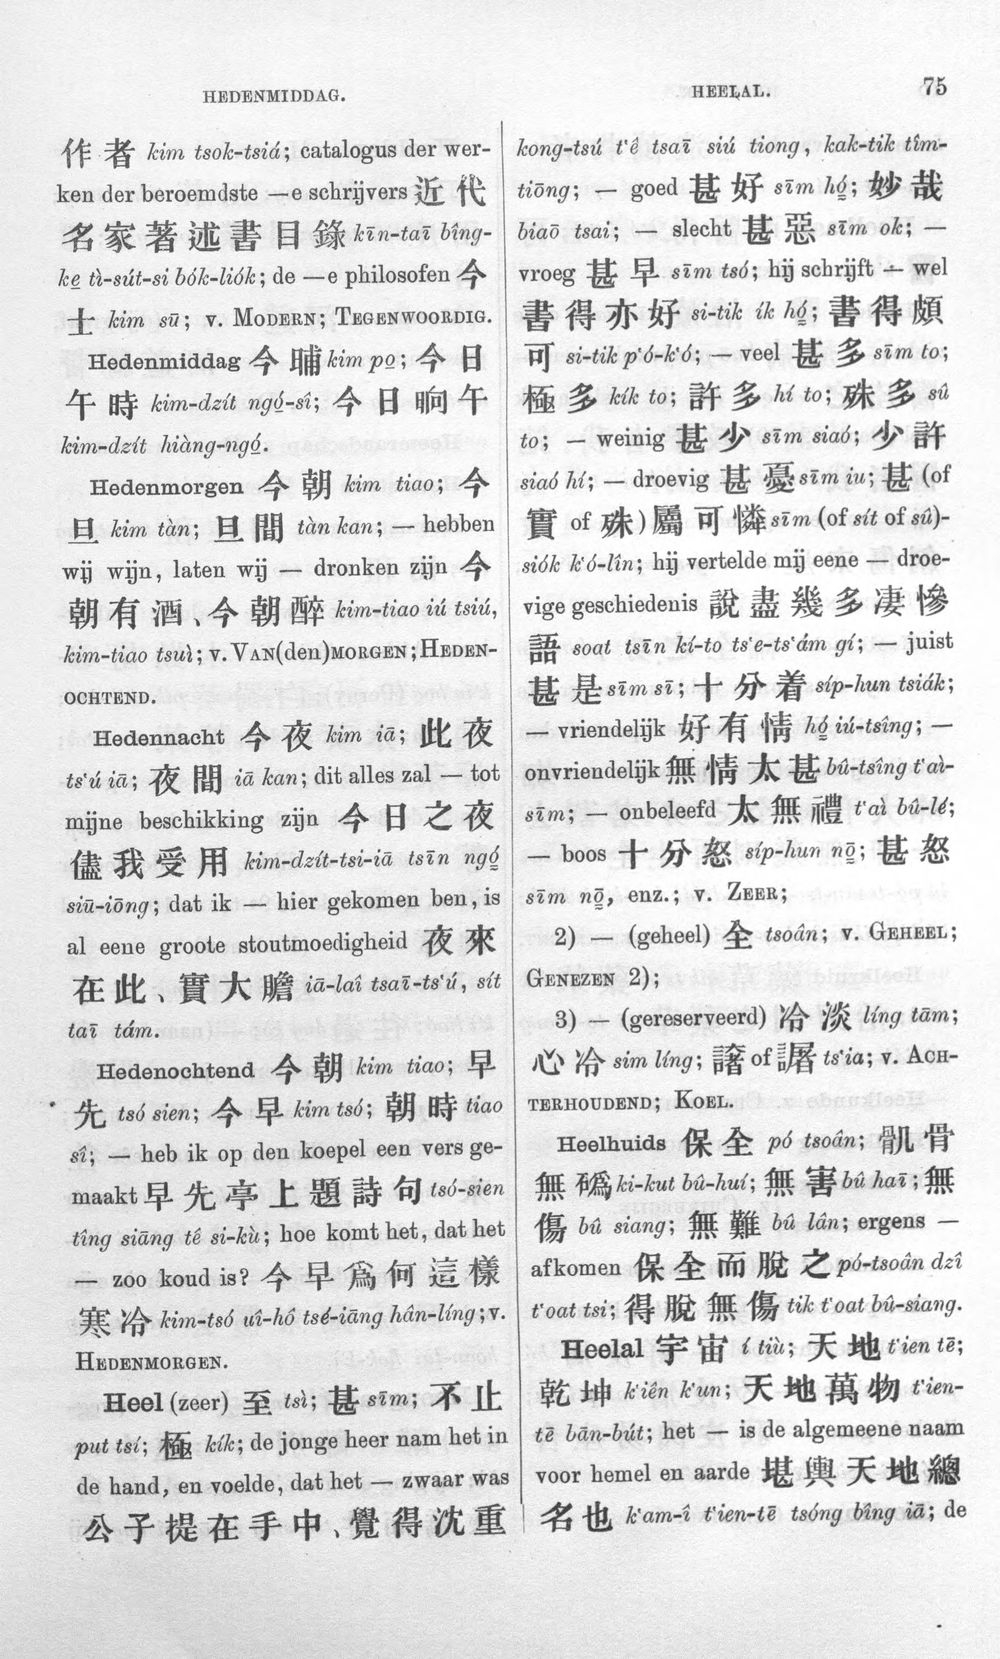 HEDENMIDDAG.
HEELAL.
75
作者 kim tsok-tsiá; catalogus der wer-
ken der beroemdste —e schrijvers 近代
名家著述書目錄 kīn-taī bîng-
ke̱ tì-sút-si bók-liók; de —e philosofen 今
士 kim sū; v. MODERN; TEGENWOORDIG.
Hedenmiddag 今晡 kim po̱; 今日
午時 kim-dzít ngó̱-sî; 今日晌午
kim-dzít hiàng-ngó̱.
Hedenmorgen 今朝 kim tiao; 今
旦 kim tàn; 旦間 tàn kan; — hebben
wij wijn, laten wij — dronken zijn 今
朝有酒、今朝醉 kim-tiao iú tsiú,
kim-tiao tsuì; v. VAN(den)MORGEN; HEDEN-
OCHTEND.
Hedennacht 今夜 kim iā; 此夜
ts'ú iā; 夜間 iā kan; dit alles zal — tot
mijne beschikking zijn 今日之夜
儘我受用 kim-dzít-tsi-iā tsīn ngó̱
siū-iōng; dat ik — hier gekomen ben, is
al eene groote stoutmoedigheid 夜來
在此、實大膽 iā-laî tsaī-ts'ú, sít
taī tám.
Hedenochtend 今朝 kim tiao; 早
先 tsó sien; 今早 kim tsó; 朝時 tiao
sî; — heb ik op den koepel een vers ge-
maakt 早先亭上題詩句 tsó-sien
tîng siāng tê si-kù; hoe komt het, dat het
— zoo koud is? 今早爲何這樣
寒冷 kim-tsó uî-hô tsé-iāng hân-líng; v.
HEDENMORGEN.
Heel (zeer) 至 tsì; 甚 sīm; 不止
put tsí; 極 kík; de jonge heer nam het in
de hand, en voelde, dat het — zwaar was
公子提在手中、覺得沈重
kong-tsú t'ê tsaī siú tiong, kak-tik tîm-
tiōng; — goed 甚好 sīm hó̱; 妙哉
biaō tsai; — slecht 甚惡 sīm ok; —
vroeg 甚早 sīm tsó; hij schrijft — wel
書得亦好 si-tik ík hó̱; 書得頗
可 si-tik p'ó-k'ó; — veel 甚多 sīm to;
極多 kík to; 許多 hí to; 殊多 sû
to; — weinig 甚少 sīm siaó; 少許
siaó hí; — droevig 甚憂 sīm iu; 甚 (of
實 of 殊) 屬可憐 sīm (of sít of sû)-
siók k'ó-lîn; hij vertelde mij eene — droe-
vige geschiedenis 說盡幾多凄慘
語 soat tsīn kí-to ts'e-ts'ám gí; — juist
甚是 sīm sī; 十分着 síp-hun tsiák;
— vriendelijk 好有情 hó̱ iú-tsîng; —
onvriendelijk 無情太甚 bû-tsîng t'aì-
sīm; — onbeleefd 太無禮 t'aì bû-lé;
— boos 十分怒 síp-hun nō̱; 甚怒
sīm nō̱, enz.; v. ZEER;
2) — (geheel) 全 tsoân; v. GEHEEL;
GENEZEN 2);
3) — (gereserveerd) 冷淡 líng tām;
心冷 sim líng; of ts'ia; v. ACH-
TERHOUDEND; KOEL.
Heelhuids 保全 pó tsoân; 骪骨
無礙 ki-kut bû-huí; 無害 bû haī; 無
傷 bû siang; 無難 bû lân; ergens —
afkomen 保全而脫之 pó-tsoân dzî
t'oat tsi; 得脫無傷 tik t'oat bû-siang.
Heelal 宇宙 í tiù; 天地 t'ien tē;
乾坤 k'iên k'un; 天地萬物 t'ien-
tē bān-bút; het — is de algemeene naam
voor hemel en aarde 堪輿天地總
名也 k'am-î t'ien-tē tsóng bîng iā; de